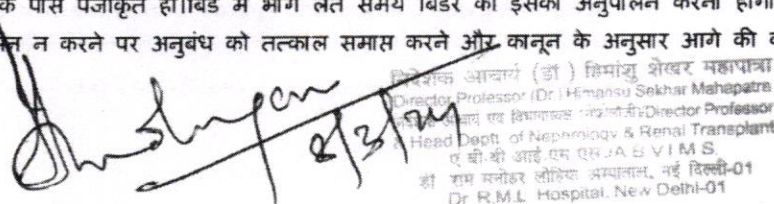 के पास पंजीकृत हो।बिड में भाग लेते समय बिडर को इसका अनुपालन करना होगा
न करने पर अनुबंध को तत्काल समाप्त करने और कानून के अनुसार आगे की
निदेशक आचार्य (डॉ) हिमांशु शेखर महापात्रा
Director Professor (Dr.) Himansu Sekhar Mahapatra
Director Professor
& Head Deptt. of Nephrology & Renal Transplant
ए.बी.वी.आई.एम.एस./A B V I M S.
डॉ राम मनोहर लोहिया अस्पताल, नई दिल्ली-01
Dr. R.M.L. Hospital, New Delhi-01